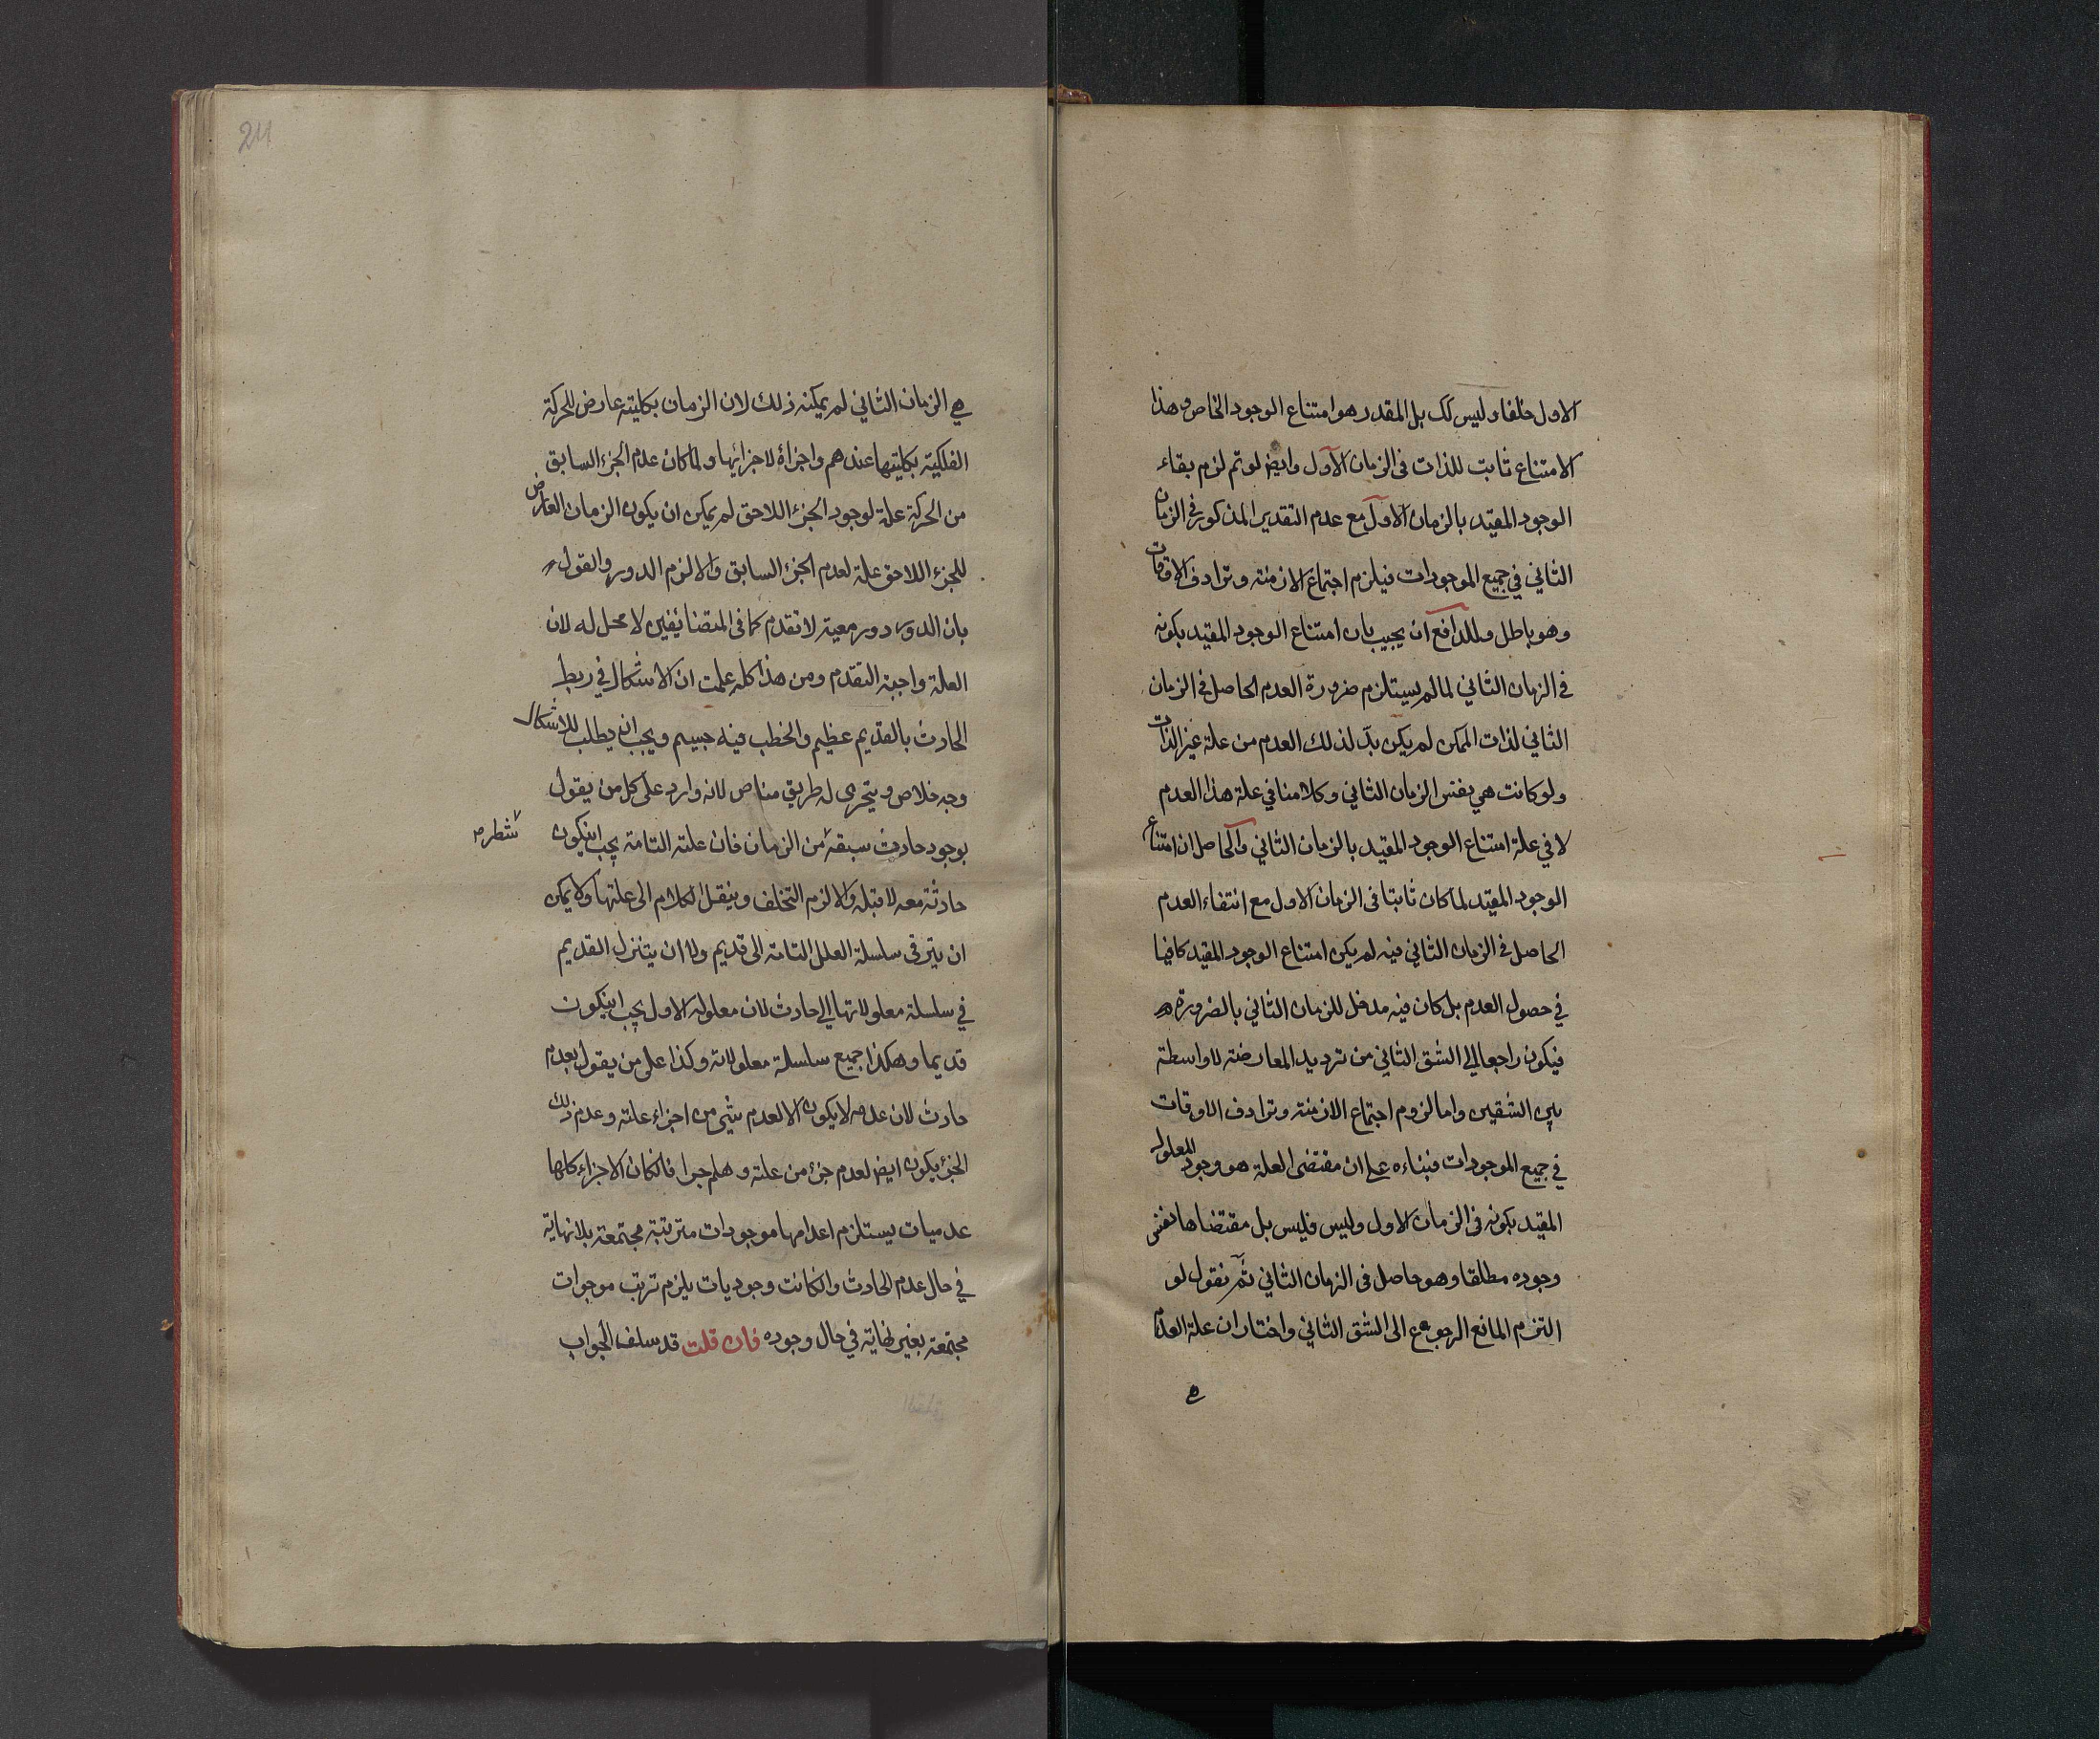 الاول خلفا وليس كك بل المقدر هو امتناع الوجود الخاص وهذا
الامتناع ثابت للذات فى الزمان الاول وايض لو تم لزم بقاء
الوجود المقيد بالزمان الاول مع عدم التقدير المذكور فى الزمان
الثاني في جميع الموجودات فيلزم اجتماع الازمنة وترادف الاوقات
وهو باطل وللدافع ان يجيب بان امتناع الوجود المقيد بكونه
فى الزمان الثاني لما لم يستلزم ضرورة العدم الحاصل فى الزمان
الثاني لذات الممكن لم يكن بدّ لذلك العدم من علة غير الذات
ولو كانت هي بفتس الزمان الثاني وكلامنا في علة هذا العدم
لا في علة امتناع الوجود المقيد بالزمان الثاني والحاصل ان امتناع
الوجود المقيد لما كان ثابتا فى الزمان الاول مع انتفاء العدم
الحاصل فى الزمان الثاني فيه لم يكن امتناع الوجود المقيد كافيا
في حصول العدم بل كان فيه مدخل للزمان الثاني بالضرورة
فيكون راجعا الى الشق الثاني من ترديد المعارضة لا واسطة
بين الشقين واما لزوم اجتماع الازمنة وترادف الاوقات
في جميع الموجودات فبناءه على ان مقتضى العلة هو وجود المعلول
المقيد بكونه فى الزمان الاول وليس فليس بل مقتضاها نفس
وجوده مطلقا وهو حاصل فى الزمان الثاني ثم نقول لو
التزم المانع الرجوع الى الشق الثاني واختار ان علة العدم
هي
24
هي الزمان الثاني لم يمكنه ذلك لان الزمان بكليته عارض للحركة
الفلكية بكليتها عندهم واجزاؤه لاجزائها ولما كان عدم الجزء السابق
من الحركة علة لوجود الجزء اللاحق لم يمكن ان يكون الزمان العارض
للجزء اللاحق علة لعدم الجزء السابق والا لزم الدور والقول
بان الدور دور معية لا تقدم كما فى المتضائفين لا محل له لان
العلة واجبة التقدم ومن هذا كله علمت ان الاشكال في ربط
الحادث بالقديم عظيم والخطب فيه جسيم ويجب ان يطلب للاشكال
وجه خلاص ويتحرى له طريق مناص لانه وارد على كل من يقول
بوجود حادث سبقه من الزمان فان علته التامة يجب ايكون
شطر
حادثة معه لا قبله والا لزم التخلف وينقل الكلام الى علتها ولا يمكن
ان يترقى سلسلة العلل التامة الى قديم ولا ان يتنزل القديم
في سلسلة معلولاتها الى حادث لان معلوله الاول يجب ايكون
قديما وهكذا جميع سلسلة معلولاته وكذا على من يقول بعدم
حادث لان عدمه لا يكون الا لعدم شيء من اجزاء علته وعدم ذلك
الجزء يكون ايض لعدم جزء من علته وهلم جرا فان كان الاجزاء كلها
عدميات يستلزم اعدامها موجودات مترتبة مجتمعة بلا نهاية
في حال عدم الحادث وان كانت وجوديات يلزم ترتب موجوات
مجتمعة بغير نهاية في حال وجوده فان قلت قد سلف الجواب